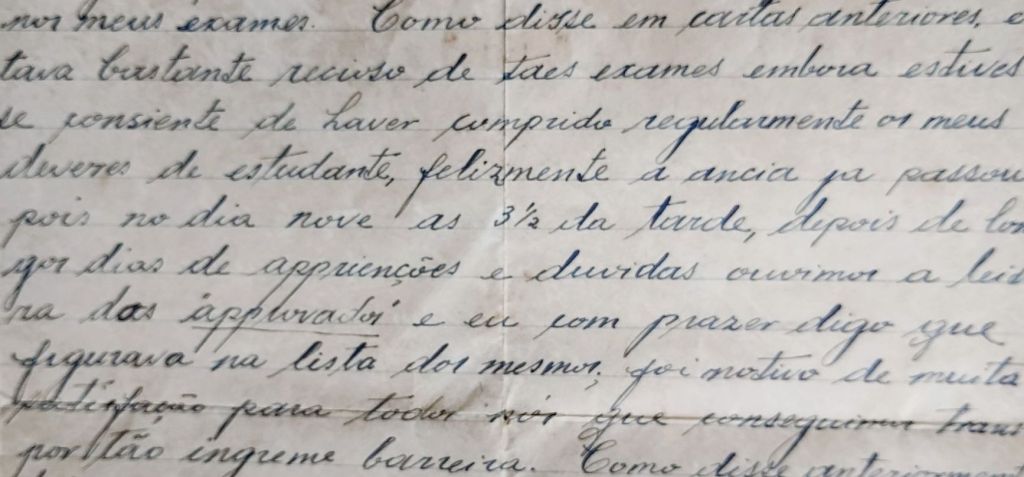 nos meus exames. Como disse em cartas anteriores, es
tava bastante recioso de taes exames embora estives
se consiente de haver comprido regularmente os meus
deveres de estudante, felizmente a ancia ja passou
pois no dia nove as 3 1/2 da tarde, depois de lon
gos dias de apprienções e duvidas ouvimos a leit
ra das "approvados" e eu com prazer digo que
figurava na lista dos mesmos, foi motivo de muita
satisfação para todos nós que conseguimos trans
por tão ingreme barreira. Como disse anteriorment